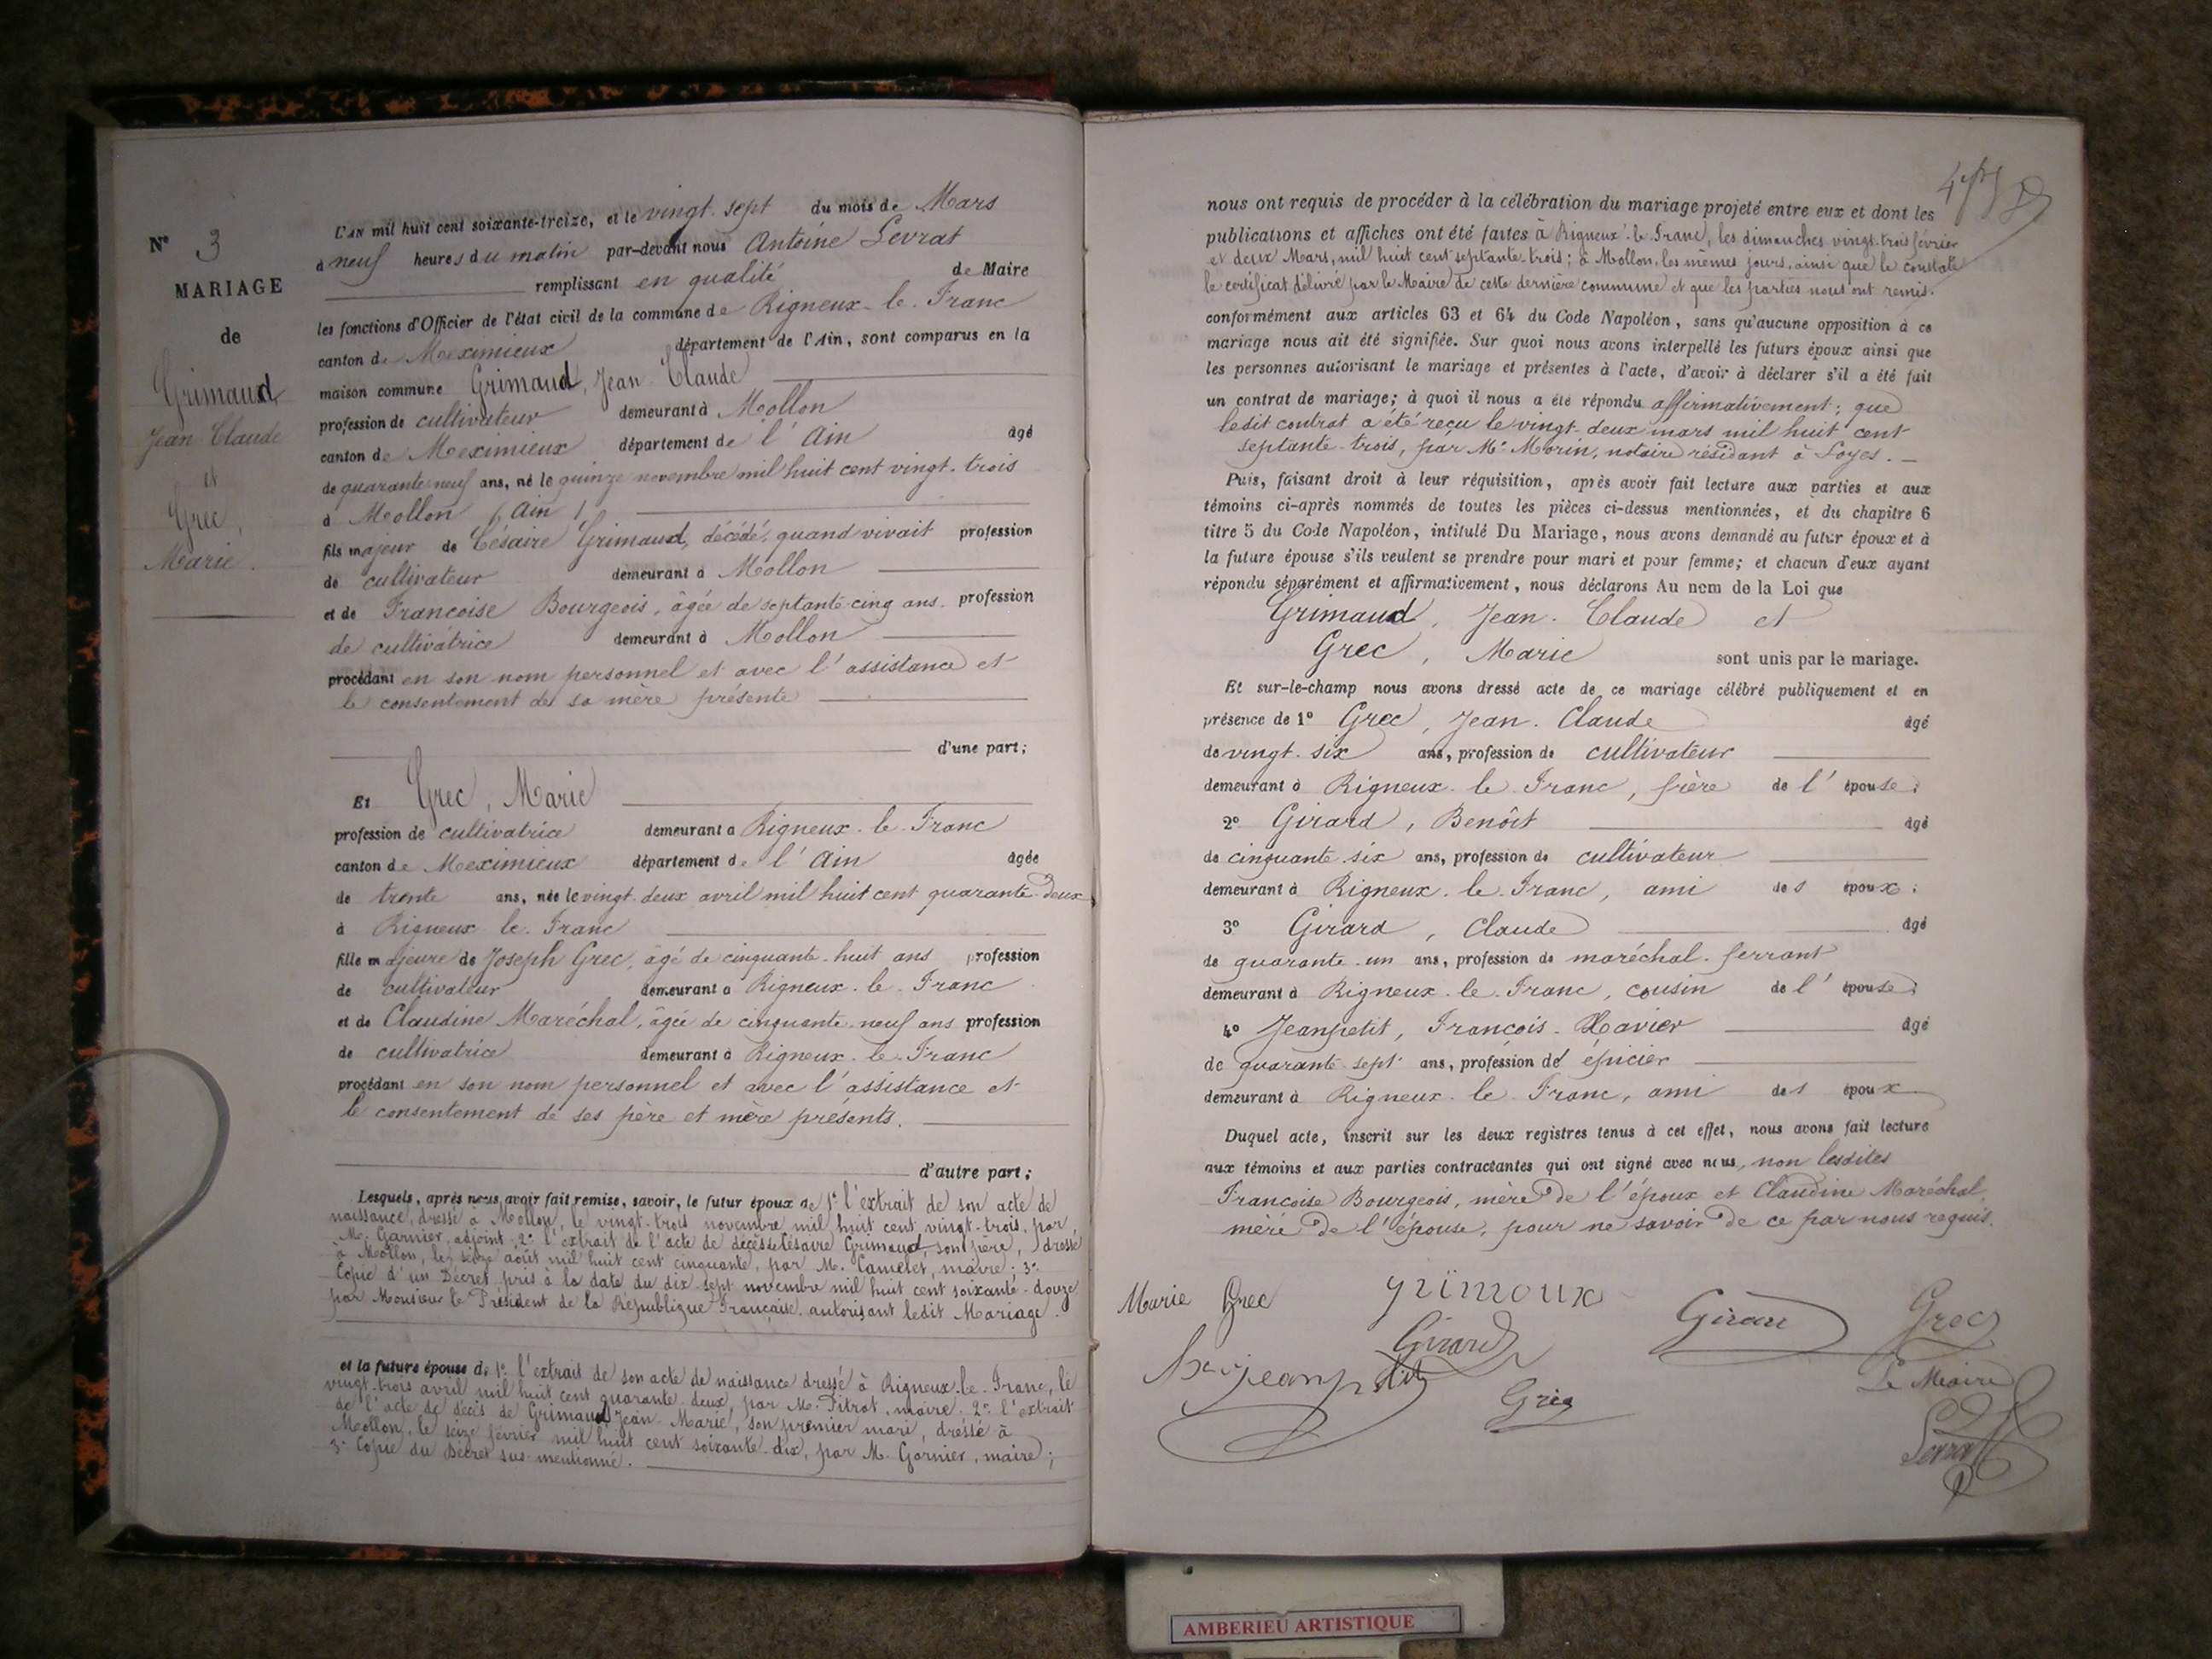 N° 3
MARIAGE
de
Grimaud,
Jean Claude
et
Grec,
Marie.
L'AN mil huit cent soixante-treize, et le vingt-sept du mois de Mars
à neuf heures du matin par-devant nous Antoine Levrat
remplissant en qualité de Maire
les fonctions d'Officier de l'état civil de la commune de Rigneux-le-Franc
canton de Meximieux département de l'Ain, sont comparus en la
maison commune Grimaud, Jean Claude
profession de cultivateur demeurant à Mollon
canton de Meximieux département de l'Ain âgé
de quarante-neuf ans, né le quinze novembre mil huit cent vingt-trois
à Mollon (Ain)
fils majeur de Césaire Grimaud, décédé, quand vivait profession
de cultivateur demeurant à Mollon
et de Francoise Bourgeois, âgée de septante-cinq ans. profession
de cultivatrice demeurant à Mollon
procédant en son nom personnel et avec l'assistance et
le consentement de sa mère présente
d'une part;
Et Grec, Marie
profession de cultivatrice demeurant à Rigneux-le-Franc
canton de Meximieux département de l'Ain âgée
de trente ans, née le vingt-deux avril mil huit cent quarante-deux
à Rigneux-le-Franc
fille majeure de Joseph Grec, âgé de cinquante-huit ans profession
de cultivateur demeurant à Rigneux-le-Franc
et de Claudine Maréchal, âgée de cinquante-neuf ans profession
de cultivatrice demeurant à Rigneux-le-Franc
procédant en son nom personnel et avec l'assistance et
le consentement de ses père et mère présents.
d'autre part;
Lesquels, après nous avoir fait remise, savoir, le futur époux de 1° l'extrait de son acte de
naissance, dressé à Mollon, le vingt-trois novembre mil huit cent vingt-trois, par
M. Garnier, adjoint; 2° l'extrait de l'acte de décès de Césaire Grimaud, son père, dressé
à Mollon, le seize août mil huit cent cinquante, par M. Camelet, maire; 3°
Copie d'un Décret pris à la date du dix-sept novembre mil huit cent soixante-douze
par Monsieur le Président de la République Française autorisant ledit Mariage.
et la future épouse de 1° l'extrait de son acte de naissance dressé à Rigneux-le-Franc, le
vingt-trois avril mil huit cent quarante-deux, par M. Pitrat, maire. 2° l'extrait
de l'acte de décès de Grimaud Jean Marie, son premier mari, dressé à
Mollon, le seize février mil huit cent soixante-dix, par M. Garnier, maire;
3° Copie du Décret sus-mentionné.
nous ont requis de procéder à la célébration du mariage projeté entre eux et dont les
publications et affiches ont été faites à Rigneux-le-Franc, les dimanches vingt-trois février
et deux Mars, mil huit cent septante-trois; à Mollon, les mêmes jours, ainsi que le constate
le certificat délivré par le Maire de cette dernière commune et que les parties nous ont remis.
conformément aux articles 63 et 64 du Code Napoléon, sans qu'aucune opposition à ce
mariage nous ait été signifiée. Sur quoi nous avons interpellé les futurs époux ainsi que
les personnes autorisant le mariage et présentes à l'acte, d'avoir à déclarer s'il a été fait
un contrat de mariage; à quoi il nous a été répondu affirmativement; que
ledit contrat a été reçu le vingt-deux mars mil huit cent
septante-trois, par Me Morin, notaire résidant à Loyes.
Puis, faisant droit à leur réquisition, après avoir fait lecture aux parties et aux
témoins ci-après nommés de toutes les pièces ci-dessus mentionnées, et du chapitre 6
titre 5 du Code Napoléon, intitulé Du Mariage, nous avons demandé au futur époux et à
la future épouse s'ils veulent se prendre pour mari et pour femme; et chacun d'eux ayant
répondu séparément et affirmativement, nous déclarons Au nom de la Loi que
Grimaud, Jean-Claude et
Grec, Marie sont unis par le mariage.
Et sur-le-champ nous avons dressé acte de ce mariage célébré publiquement et en
présence de 1° Grec, Jean-Claude âgé
de vingt-six ans, profession de cultivateur
demeurant à Rigneux-le-Franc, frère de l'épouse;
2° Girard, Benoît âgé
de cinquante-six ans, profession de cultivateur
demeurant à Rigneux-le-Franc, ami des époux;
3° Girard, Claude âgé
de quarante-un ans, profession de maréchal-ferrant
demeurant à Rigneux-le-Franc, cousin de l'épouse;
4° Jeanpetit, François-Xavier âgé
de quarante-sept ans, profession d'épicier
demeurant à Rigneux-le-Franc, ami des époux
Duquel acte, inscrit sur les deux registres tenus à cet effet, nous avons fait lecture
aux témoins et aux parties contractantes qui ont signé avec nous, non lesdites
Francoise Bourgeois, mère de l'époux et Claudine Maréchal,
mère de l'épouse, pour ne savoir de ce par nous requis.
Marie Grec grimoux Girard Grec
Girard
jeanpetit Grec Le Maire
Levrat
AMBERIEU ARTISTIQUE